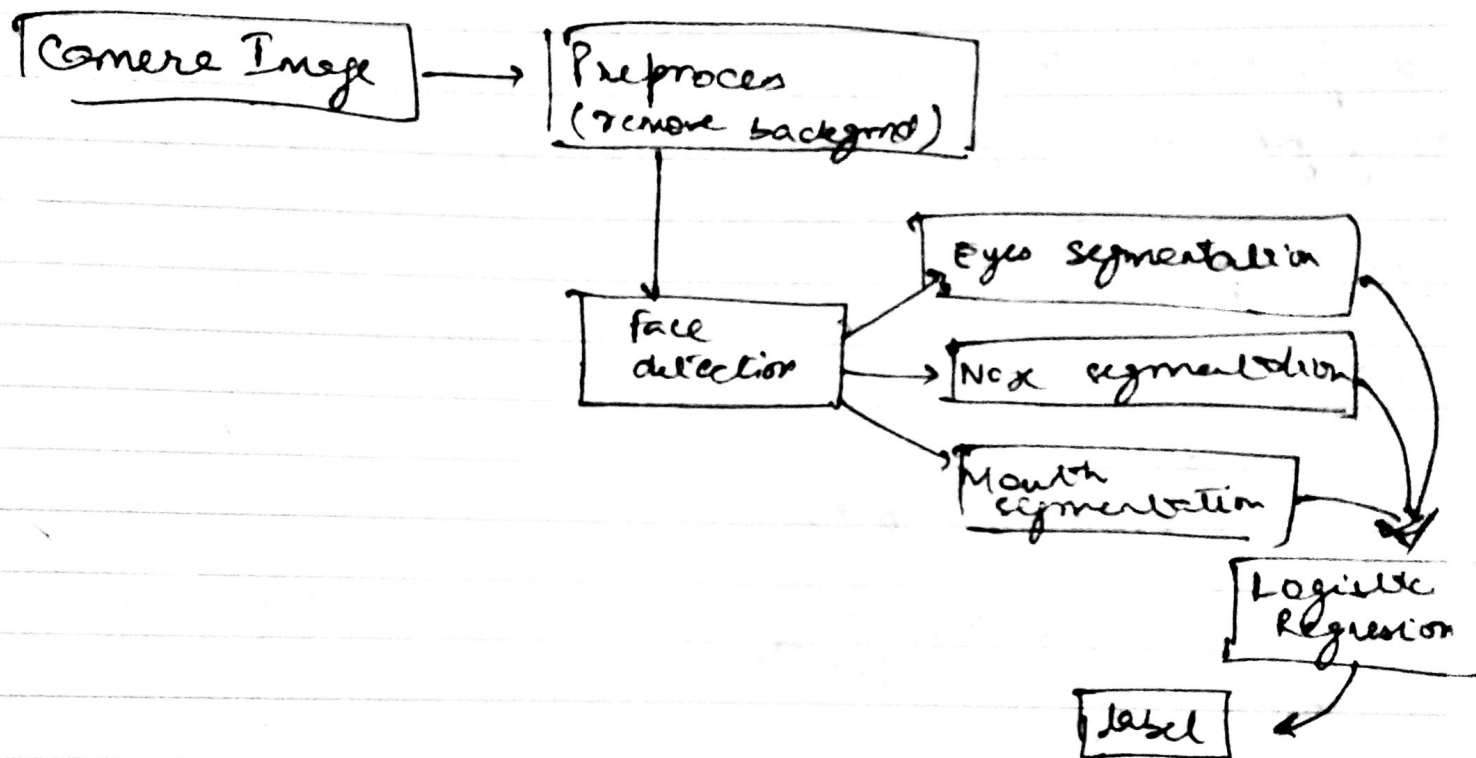 Camera Image
Preproces
(remove backgrnd)
Face
detection
Eyes segmentation
Nose segmentation
Mouth
segmentation
Logistic
Regresion
label